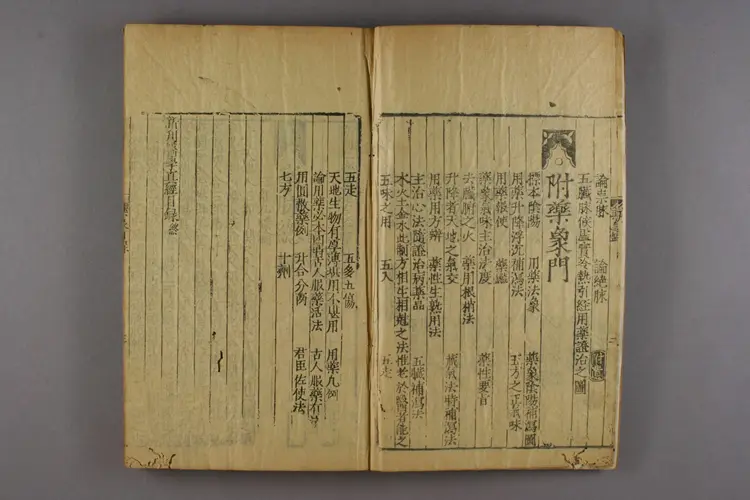 論祟脉 論絶脉
五臟脉候虚實冷熱引經用藥證治之圖
附藥象門
標本陰陽 用藥法象 藥象陰陽補瀉圖
用藥升降浮沉補瀉法 五方之正氣味
用藥 使
藥象氣味主治 度 藥性要旨
去臟腑之火 藥用根梢法
升降者天地之氣交
用藥用方辨 藥性生熟用法
主治心法隨證治病藥品 五臟補瀉法
水火土金水此制方相生相尅之法惟老於醫者能之
五味之用 五入 五走
五走 五多五傷
天地生物有厚薄堪用不堪用 用藥凡例
論用藥必本 古人服藥活法 古人服藥有
用圓散藥例 升合分兩 君臣佐使法
七方 十劑
直經目録